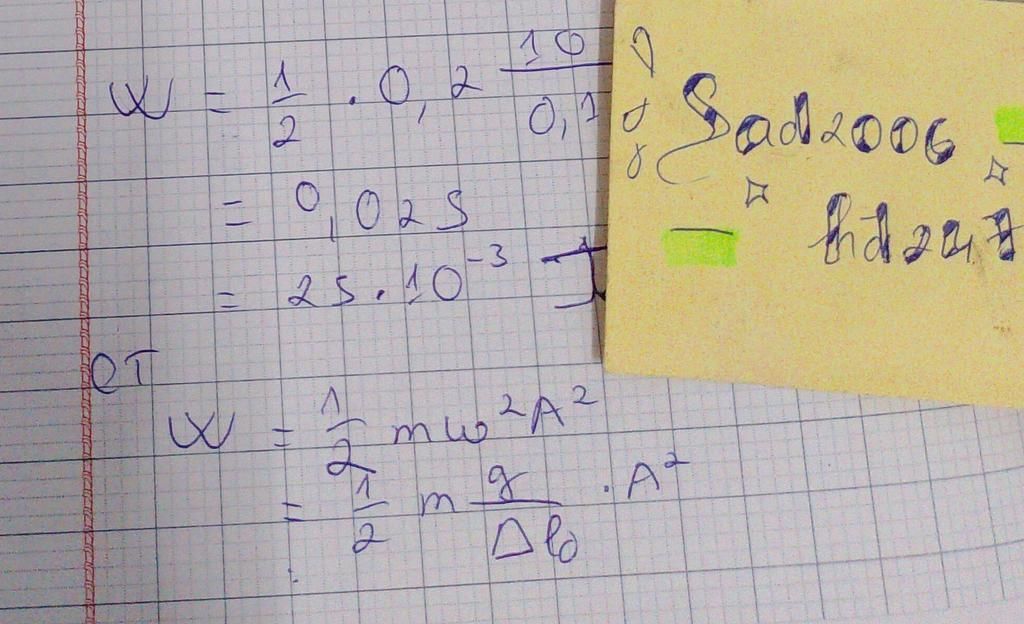 W = 1/2 . 0,2 10/0,1
= 0,025
= 25.10^-3 J
eT
W = 1/2 mω²A²
= 1/2 m g/Δl₀ . A²
Sad2006
hd24